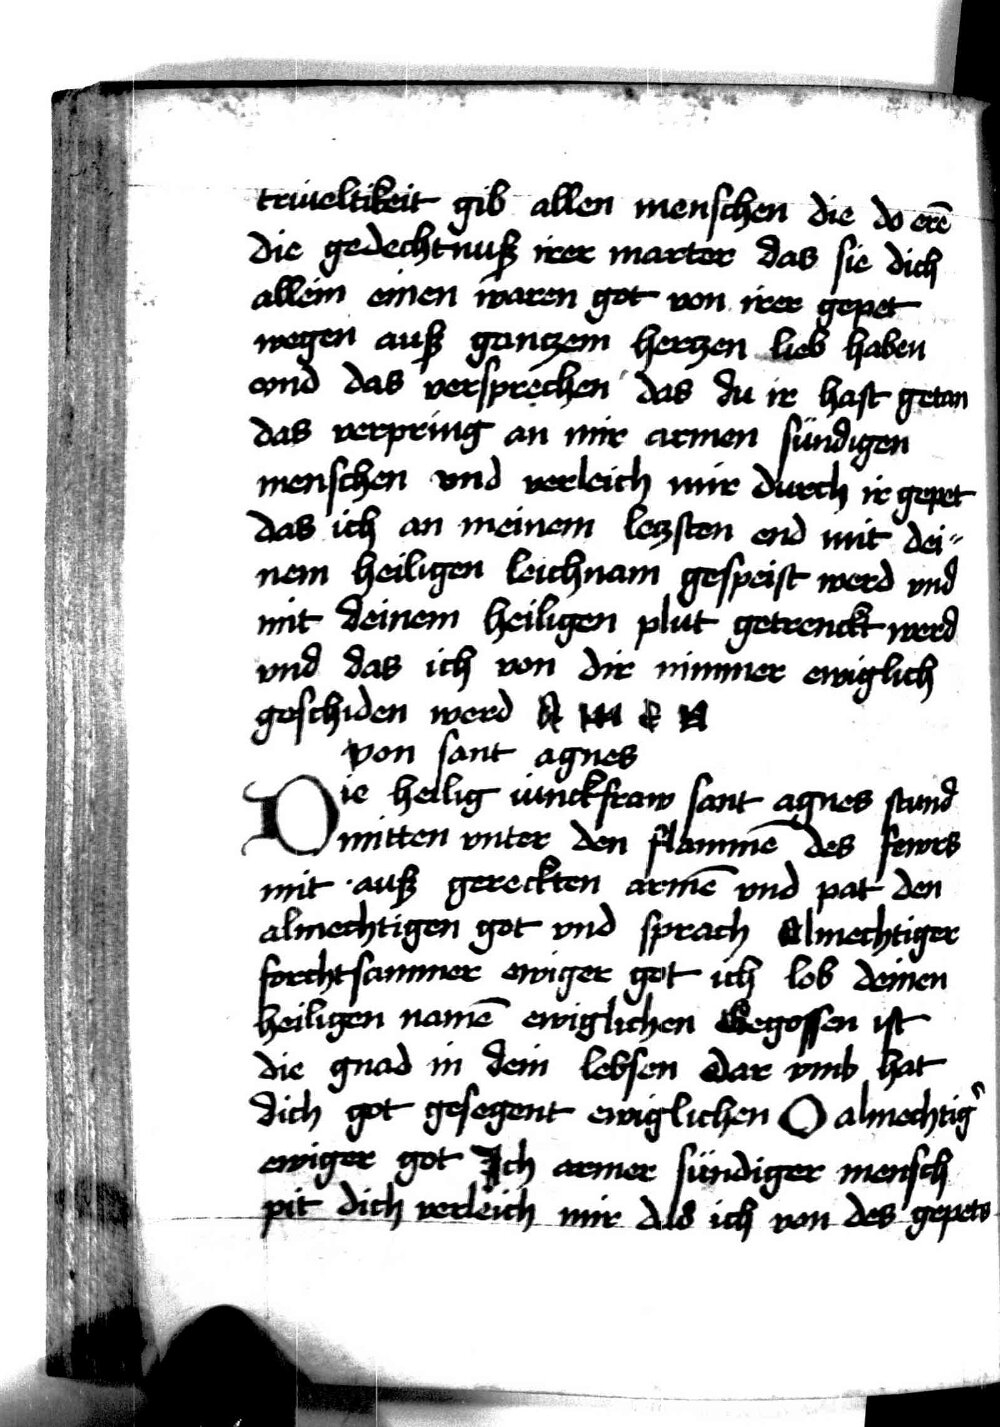 triueltikeit gib allen menschen die do erē
die gedechtnuß irer marter das sie dich
allein einen waren got von irer gepet
wegen auß gantzem hertzen lieb haben
vnd das versprechen das du ir hast getan
das verpring an mir armen sündigen
menschen vnd verleich mir durch ir gepet
das ich an meinem letzsten end mit dei-
nem heiligen leichnam gespeist werd vnd
mit deinem heiligen plut getrenckt werd
vnd das ich von dir nimmer ewiglich
geschiden werd A m e n
von sant agnes
Die heilig iunckfraw sant agnes stund
mitten vnter den flammē des fewrs
mit auß gereckten armē vnd pat den
almechtigen got vnd sprach Almechtiger
forchtsammer ewiger got ich lob deinen
heiligen namē ewiglichen Gegossen ist
die gnad in dein lebsen Dar vmb hat
dich got gesegent ewiglichen O almechtig᾽
ewiger got Ich armer sündiger mensch
pit dich verleich mir das ich von des gepets